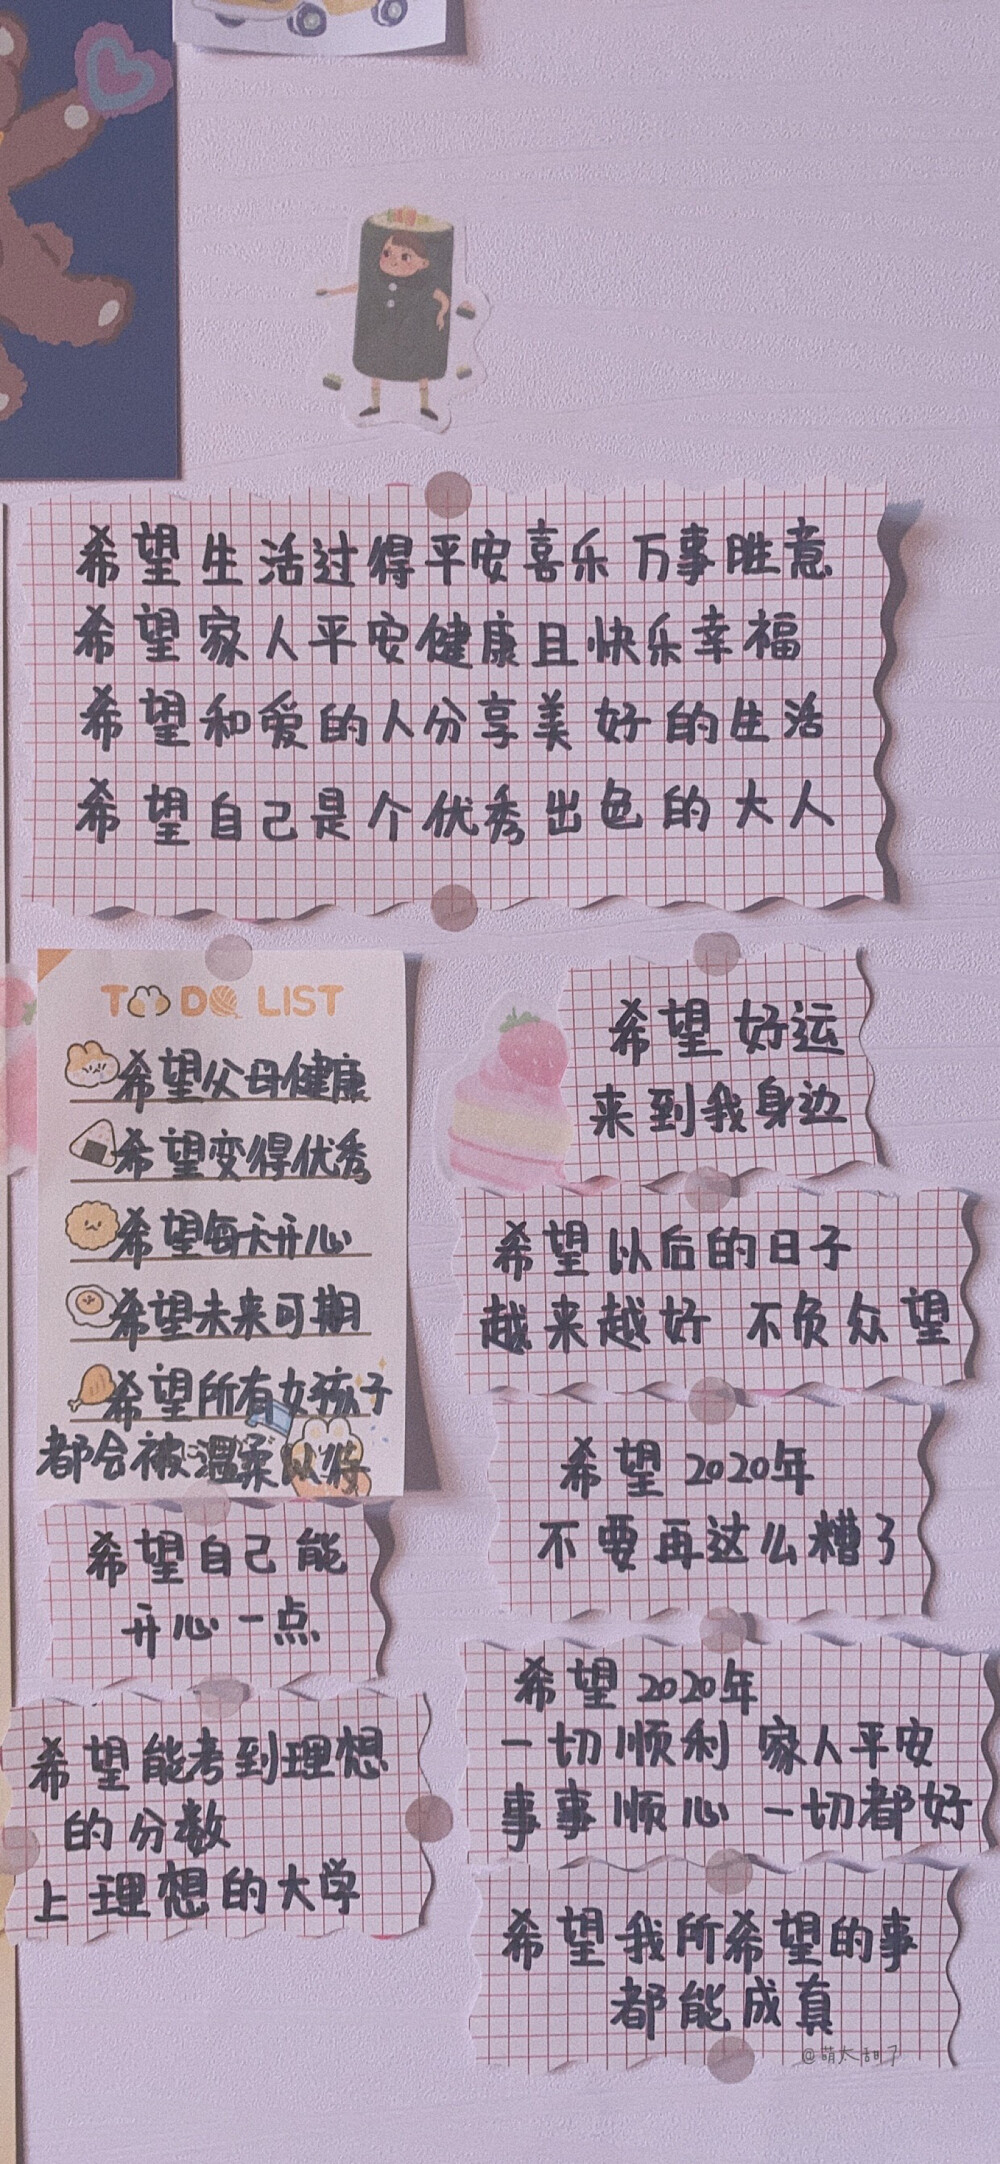 希望生活过得平安喜乐 万事胜意
希望家人平安健康且快乐幸福
希望和爱的人分享美好的生活
希望自己是个优秀出色的大人
TO DO LIST
希望父母健康
希望变得优秀
希望每天开心
希望未来可期
希望所有女孩子
都会被温柔以待
希望自己能
开心一点
希望能考到理想
的分数
上理想的大学
希望好运
来到我身边
希望以后的日子
越来越好 不负众望
希望2020年
不要再这么糟了
希望2020年
一切顺利 家人平安
事事顺心 一切都好
希望我所希望的事
都能成真
@萌太甜了